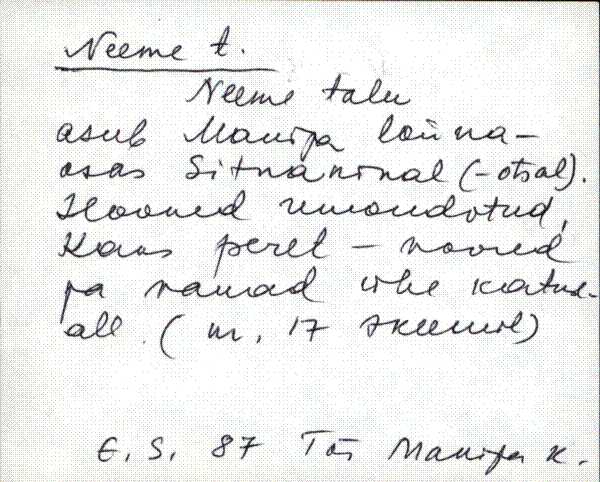 Neeme t.
Neeme talu
asub Manija lõuna-
osas Sitnaninal (-otsal).
Hooned remonditud,
Kaks peret - noored
ja vanad ühe katuse
all. (nr. 17 skeemil)
E. S. 87 Tõs Manija k.